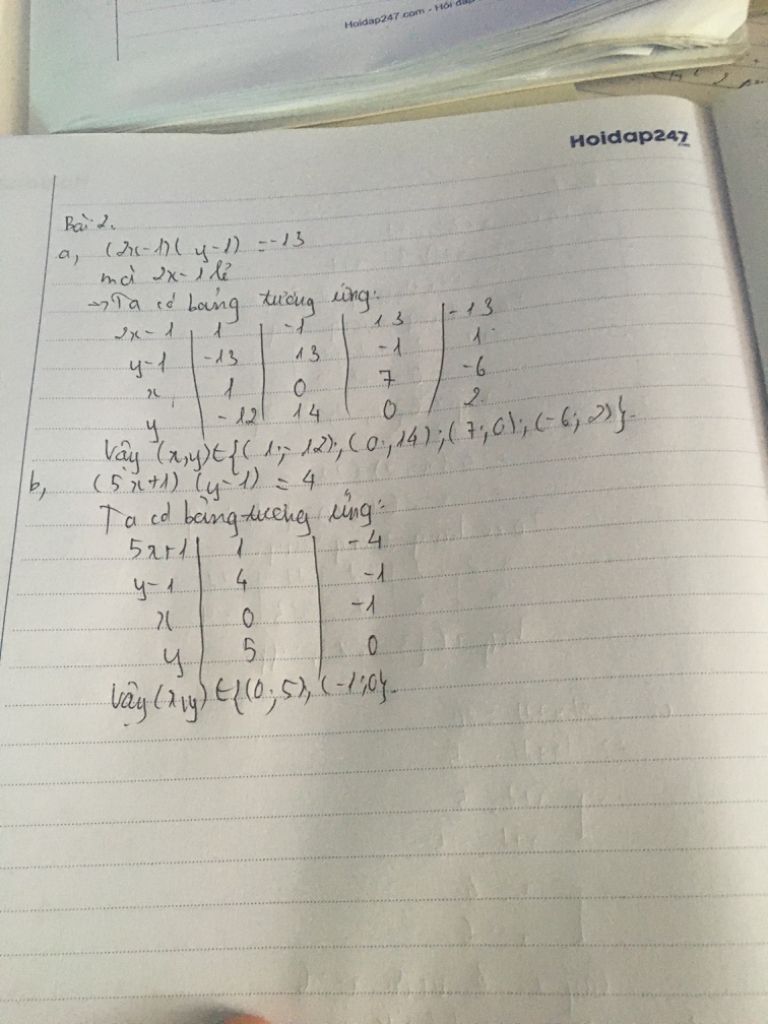 Hoidap247.com - Hỏi đáp
Hoidap247
Bài 2.
a, (2x-1)(y-1) = -13
mà 2x-1 lẻ
→ Ta có bảng tương ứng:
2x-1 | 1 | -1 | 13 | -13
y-1 | -13 | 13 | -1 | 1
x | 1 | 0 | 7 | -6
y | -12 | 14 | 0 | 2
Vậy (x,y)∈{(1;-12);(0;14);(7;0);(-6;2)}.
b, (5x+1)(y-1) = 4
Ta có bảng tương ứng:
5x+1 | 1 | -4
y-1 | 4 | -1
x | 0 | -1
y | 5 | 0
Vậy (x,y)∈{(0;5),(-1;0}.